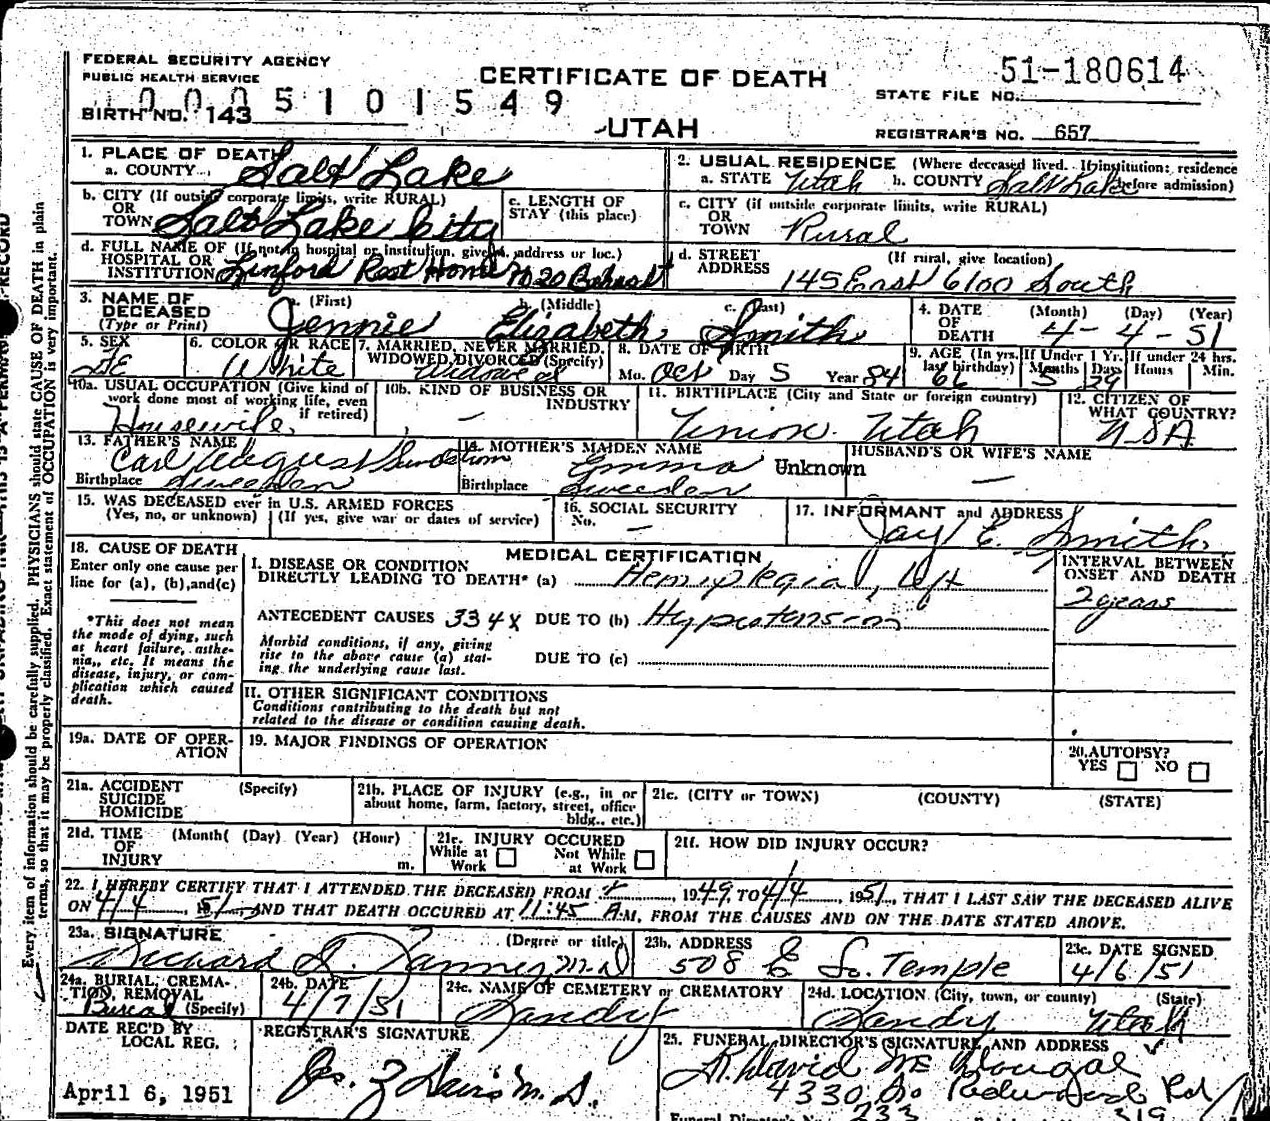 FEDERAL SECURITY AGENCY
PUBLIC HEALTH SERVICE
CERTIFICATE OF DEATH
51-180614
STATE FILE NO.
0005101549
BIRTH NO. 143
UTAH
REGISTRAR'S NO. 657
1. PLACE OF DEATH
a. COUNTY Salt Lake
2. USUAL RESIDENCE (Where deceased lived. If institution: residence before admission)
a. STATE Utah b. COUNTY Salt Lake
b. CITY (If outside corporate limits, write RURAL)
OR TOWN Salt Lake City
c. LENGTH OF STAY (this place)
c. CITY (if outside corporate limits, write RURAL)
OR TOWN Rural
d. FULL NAME OF (If not in hospital or institution, give st. address or loc.)
HOSPITAL OR INSTITUTION Linford Rest Home
d. STREET ADDRESS (If rural, give location)
145 East 6100 South
3. NAME OF DECEASED (Type or Print)
a. (First) b. (Middle) c. (Last)
Jennie Elizabeth Smith
4. DATE OF DEATH (Month) (Day) (Year)
4-4-51
5. SEX
FE
6. COLOR OR RACE
White
7. MARRIED, NEVER MARRIED, WIDOWED, DIVORCED (Specify)
Widowed
8. DATE OF BIRTH
Mo. Oct Day 5 Year 84
9. AGE (In yrs. last birthday) 66
If Under 1 Yr. Months 5 Days 29
If under 24 hrs. Hours Min.
10a. USUAL OCCUPATION (Give kind of work done most of working life, even if retired)
Housewife
10b. KIND OF BUSINESS OR INDUSTRY
-
11. BIRTHPLACE (City and State or foreign country)
Union. Utah
12. CITIZEN OF WHAT COUNTRY?
USA
13. FATHER'S NAME
Carl August Sundstrom
Birthplace Sweeden
14. MOTHER'S MAIDEN NAME
Emma Unknown
Birthplace Sweeden
HUSBAND'S OR WIFE'S NAME
-
15. WAS DECEASED ever in U.S. ARMED FORCES
(Yes, no, or unknown) (If yes, give war or dates of service)
16. SOCIAL SECURITY No. -
17. INFORMANT and ADDRESS
Jay E. Smith
18. CAUSE OF DEATH
Enter only one cause per line for (a), (b), and (c)
*This does not mean the mode of dying, such as heart failure, asthenia, etc. It means the disease, injury, or complication which caused death.
MEDICAL CERTIFICATION
I. DISEASE OR CONDITION DIRECTLY LEADING TO DEATH* (a) Hemiplegia, left
INTERVAL BETWEEN ONSET AND DEATH
2 years
ANTECEDENT CAUSES 334X DUE TO (b) Hypertension
Morbid conditions, if any, giving rise to the above cause (a) stating the underlying cause last.
DUE TO (c)
II. OTHER SIGNIFICANT CONDITIONS
Conditions contributing to the death but not related to the disease or condition causing death.
19a. DATE OF OPERATION
19. MAJOR FINDINGS OF OPERATION
20. AUTOPSY?
YES NO
21a. ACCIDENT SUICIDE HOMICIDE (Specify)
21b. PLACE OF INJURY (e.g., in or about home, farm, factory, street, office bldg., etc.)
21c. (CITY or TOWN) (COUNTY) (STATE)
21d. TIME OF INJURY (Month( (Day) (Year) (Hour) m.
21e. INJURY OCCURED
While at Work Not While at Work
21f. HOW DID INJURY OCCUR?
22. I HEREBY CERTIFY THAT I ATTENDED THE DECEASED FROM , 1949, TO 4/4, 1951, THAT I LAST SAW THE DECEASED ALIVE
ON 4/4, 51 AND THAT DEATH OCCURED AT 11:45 A.M, FROM THE CAUSES AND ON THE DATE STATED ABOVE.
23a. SIGNATURE (Degree or title)
Richard S. Tanner M.D
23b. ADDRESS
508 E So. Temple
23c. DATE SIGNED
4/6/51
24a. BURIAL, CREMATION, REMOVAL (Specify)
Burial
24b. DATE
4/7/51
24c. NAME OF CEMETERY or CREMATORY
Sandy
24d. LOCATION (City, town, or county) (State)
Sandy Utah
DATE REC'D BY LOCAL REG.
April 6, 1951
REGISTRAR'S SIGNATURE
25. FUNERAL DIRECTOR'S (SIGNATURE AND ADDRESS
4330 So Redwood Rd
233
319
Every item of information should be carefully supplied. PHYSICIANS should state CAUSE OF DEATH in plain
terms, so that it may be properly classified. Exact statement of OCCUPATION is very important.